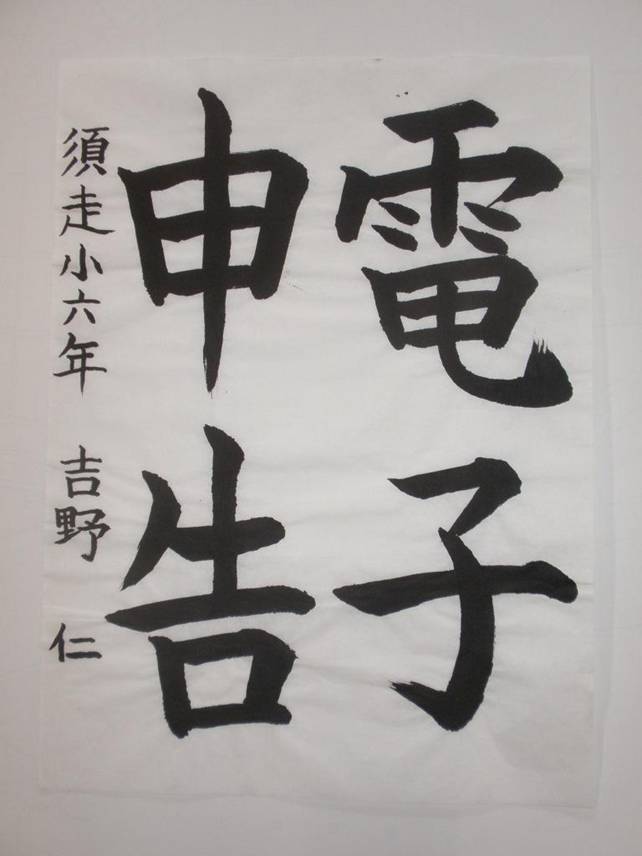 電子
申告
須走小六年 吉野 仁